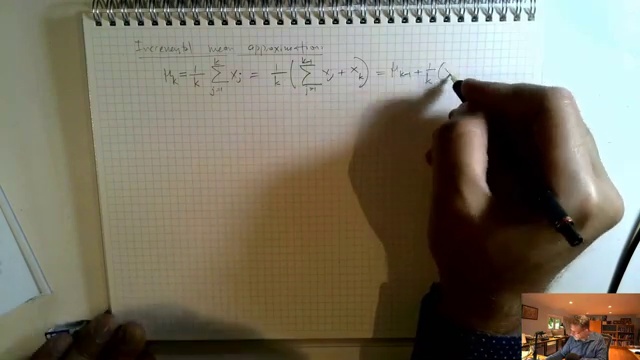 Incremental mean approximation:
μ_k = 1/k ∑_{j=1}^{k} x_j = 1/k ( ∑_{j=1}^{k-1} x_j + x_k ) = μ_{k-1} + 1/k (x